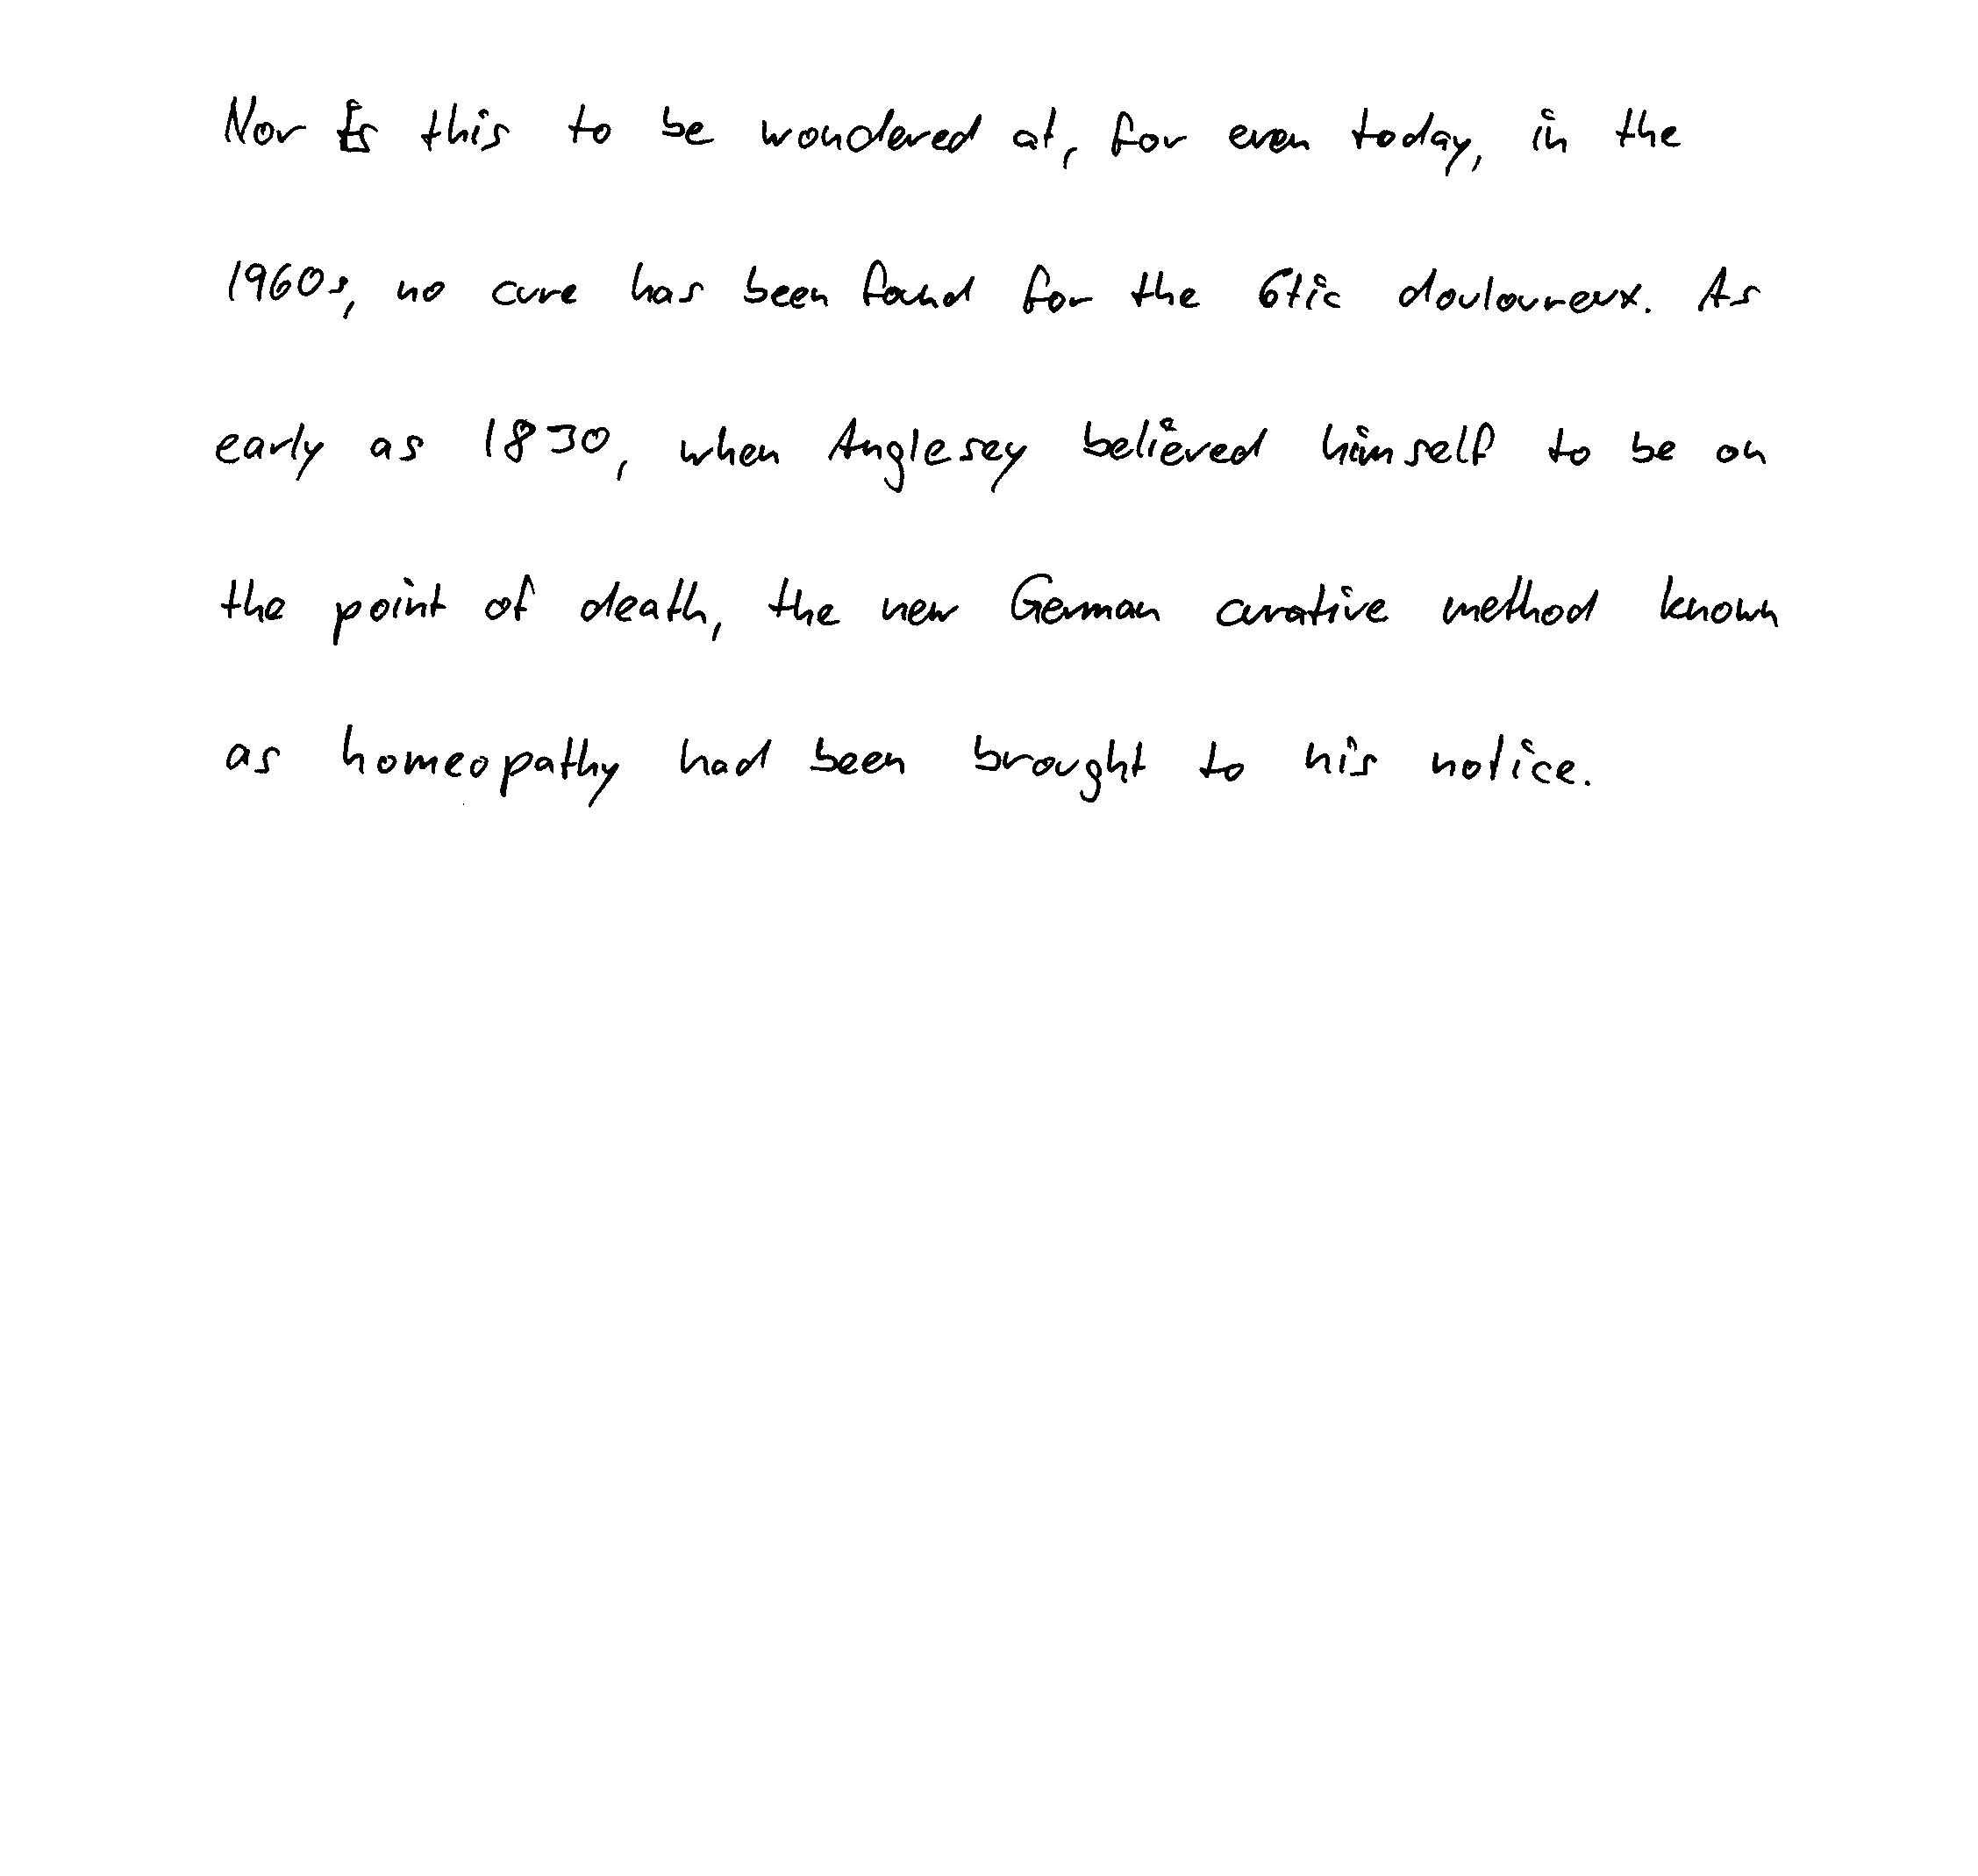 Nor is this to be wondered at, for even today, in the
1960s, no cure has been found for the 6tic douloureux. As
early as 1830, when Anglesey believed himself to be on
the point of death, the new German curative method known
as homeopathy had been brought to his notice.